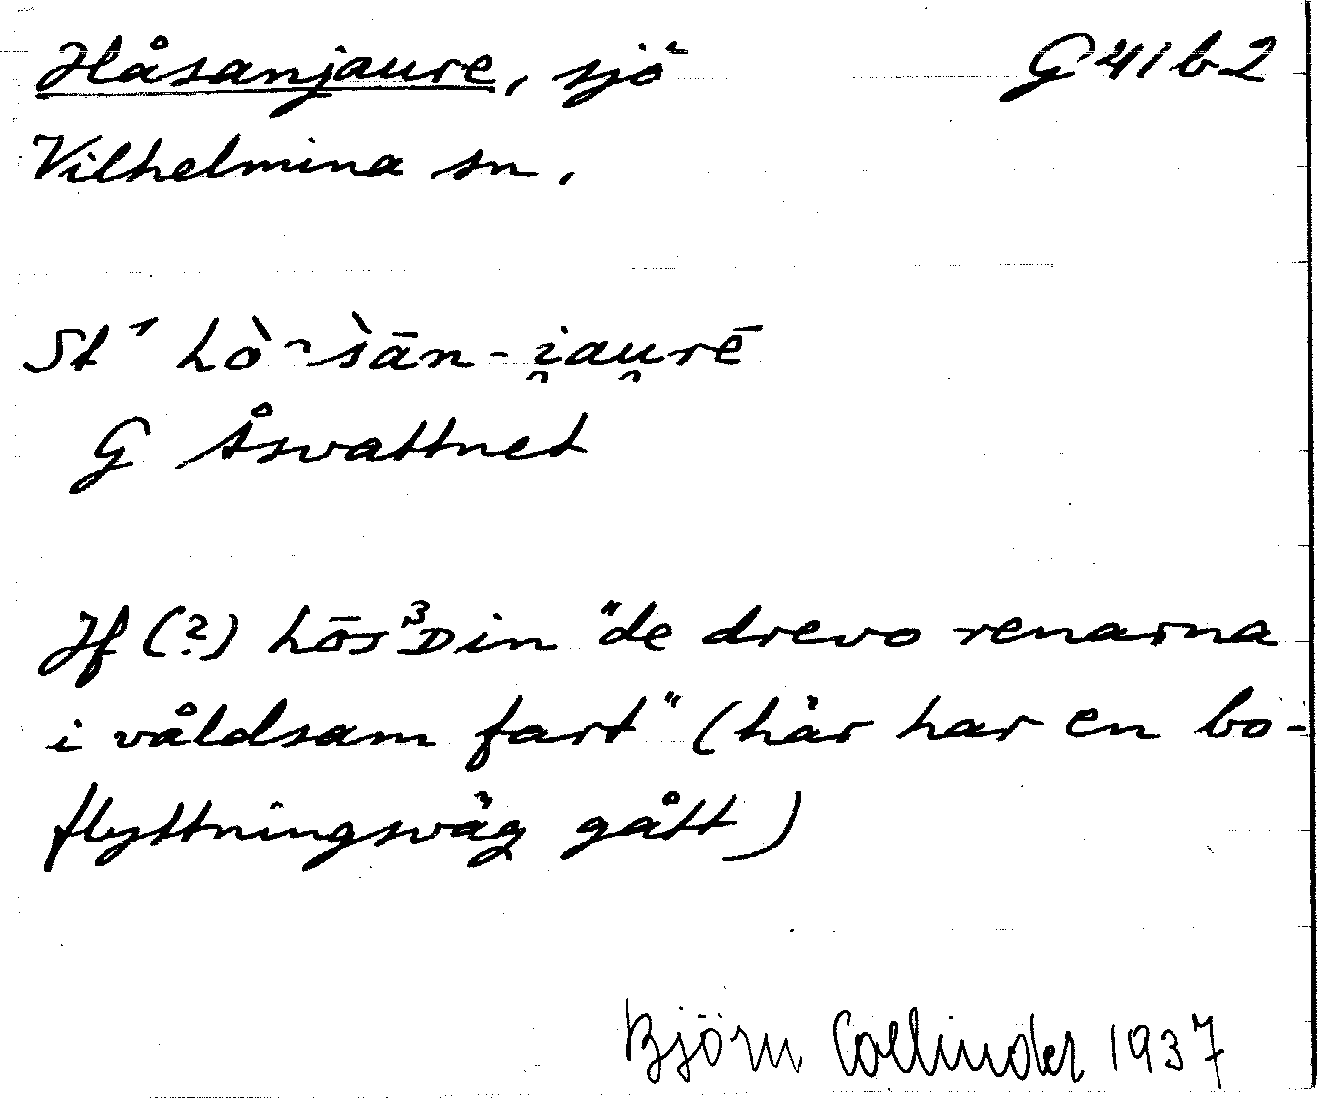 Håsanjaure, sjö G 41 b 2
Vilhelmina sn.
St ꜛ hò͐sān-i̯au̯rē
G Åsvattnet
Jf (?) hōs³Din "de drevo renarna
i våldsam fart" (här har en bo-
flyttningsväg gått)
Björn Collinder 1937